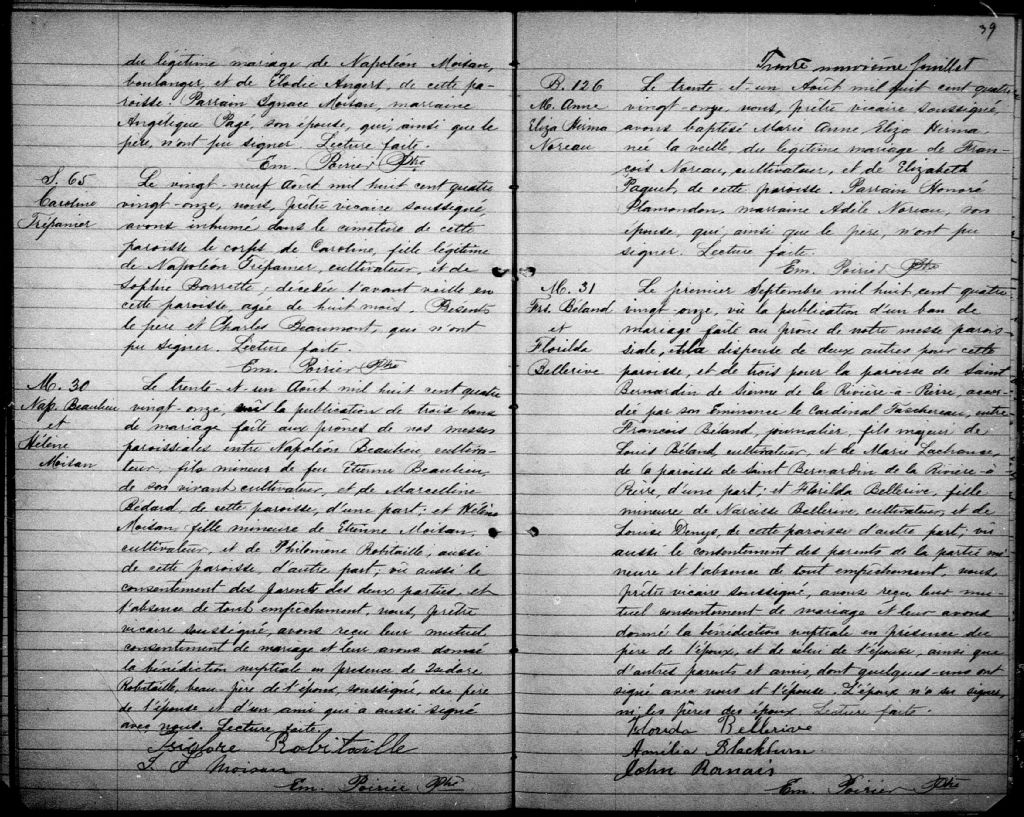 du légitime mariage de Napoléon Moisan,
boulanger, et de Elodie Angers, de cette pa-
roisse. Parrain Ignace Moisan, marraine
Angélique Pagé, son épouse, qui, ainsi que le
père, n'ont pu signer. Lecture faite.
Em. Poirier Ptre
S. 65
Caroline
Trépanier
Le vingt-neuf Août mil huit cent quatre
vingt-onze, nous, prêtre vicaire soussigné,
avons inhumé dans le cimetière de cette
paroisse le corps de Caroline, fille légitime
de Napoléon Trépanier, cultivateur, et de
Sophie Barrette, décédée l'avant veille en
cette paroisse, agée de huit mois. Présents
le père et Charles Beaumont, qui n'ont
pu signer. Lecture faite.
Em. Poirier Ptre
M. 30
Nap. Beaulieu
et
Hélène
Moisan
Le trente-et-un Août mil huit cent quatre
vingt-onze, vu la publication de trois bans
de mariage faite aux prones de nos messes
paroissiales entre Napoléon Beaulieu, cultiva-
teur, fils mineur de feu Etienne Beaulieu,
de son vivant cultivateur, et de Marcelline
Bédard, de cette paroisse, d'une part; et Hélène
Moisan, fille mineure de Etienne Moisan,
cultivateur, et de Philomène Robitaille, aussi
de cette paroisse, d'autre part; vû aussi le
consentement des parents des deux parties, et
l'absence de tout empêchement, nous, prêtre
vicaire soussigné, avons reçu leur mutuel
consentement de mariage et leur avons donné
la bénédiction nuptiale en présence de Isidore
Robitaille, beau-père de l'époux, soussigné, du père
de l'épouse et d'un ami qui a aussi signé
avec nous. Lecture faite.
Isidore Robitaille
Moisan
Em. Poirier Ptre
39
Trente neuvième feuillet
B. 126
M. Anne
Eliza Herma
Noreau
Le trente-et-un Août mil huit cent quatre
vingt-onze, nous, prêtre vicaire soussigné,
avons baptisé Marie Anne Eliza Herma,
née la veille, du légitime mariage de Fran-
çois Noreau, cultivateur, et de Elizabeth
Paquet, de cette paroisse. Parrain Honoré
Plamondon, marraine Adèle Noreau, son
épouse, qui, ainsi que le père, n'ont pu
signer. Lecture faite.
Em. Poirier Ptre
M. 31
Frs. Béland
et
Florilda
Bellerive
Le premier Septembre mil huit cent quatre
vingt-onze, vu la publication d'un ban de
mariage faite au prône de notre messe parois-
siale, et la dispense de deux autres pour cette
paroisse, et de trois pour la paroisse de Saint
Bernardin de Sienne de la Rivière-à-Pierre, accor-
dée par son Eminence le Cardinal Taschereau, entre
François Béland, journalier, fils majeur de
Louis Béland, cultivateur, et de Marie Lachance,
de la paroisse de Saint Bernardin de la Rivière-à-
Pierre, d'une part; et Florilda Bellerive, fille
mineure de Narcisse Bellerive, cultivateur, et de
Louise Denys, de cette paroisse d'autre part; vû
aussi le consentement des parents de la partie mi-
neure et l'absence de tout empêchement, nous,
prêtre vicaire soussigné, avons reçu leur mu-
tuel consentement de mariage et leur avons
donné la bénédiction nuptiale en présence du
père de l'époux, et de celui de l'épouse, ainsi que
d'autres parents et amis, dont quelques-uns ont
signé avec nous et l'épouse. L'époux n'a su signer,
ni les pères des époux. Lecture faite.
Florida Bellerive
Amilia Blackburn
John
Em. Poirier Ptre